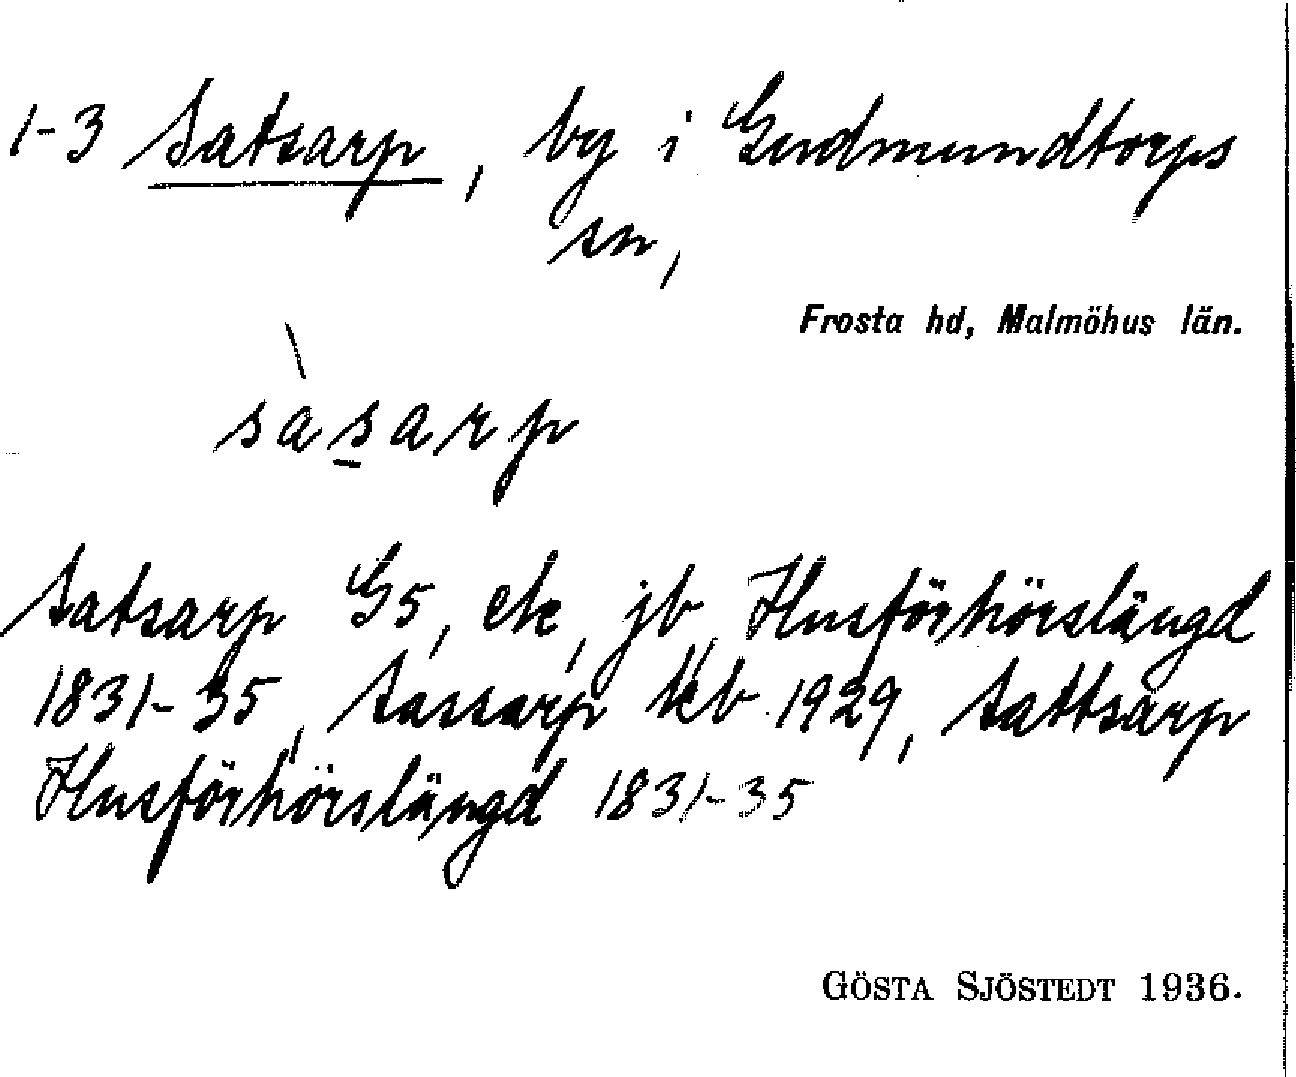 1-3 Satsarp, by i Gudmundtorps
sn,
Frosta hd, Malmöhus län.
sàsarp
Satsarp G5, ek, jb, Husförhörslängd
1831-35, Sassarp kb 1929, Sattsarp
Husförhörslängd 1831-35
GÖSTA SJÖSTEDT 1936.